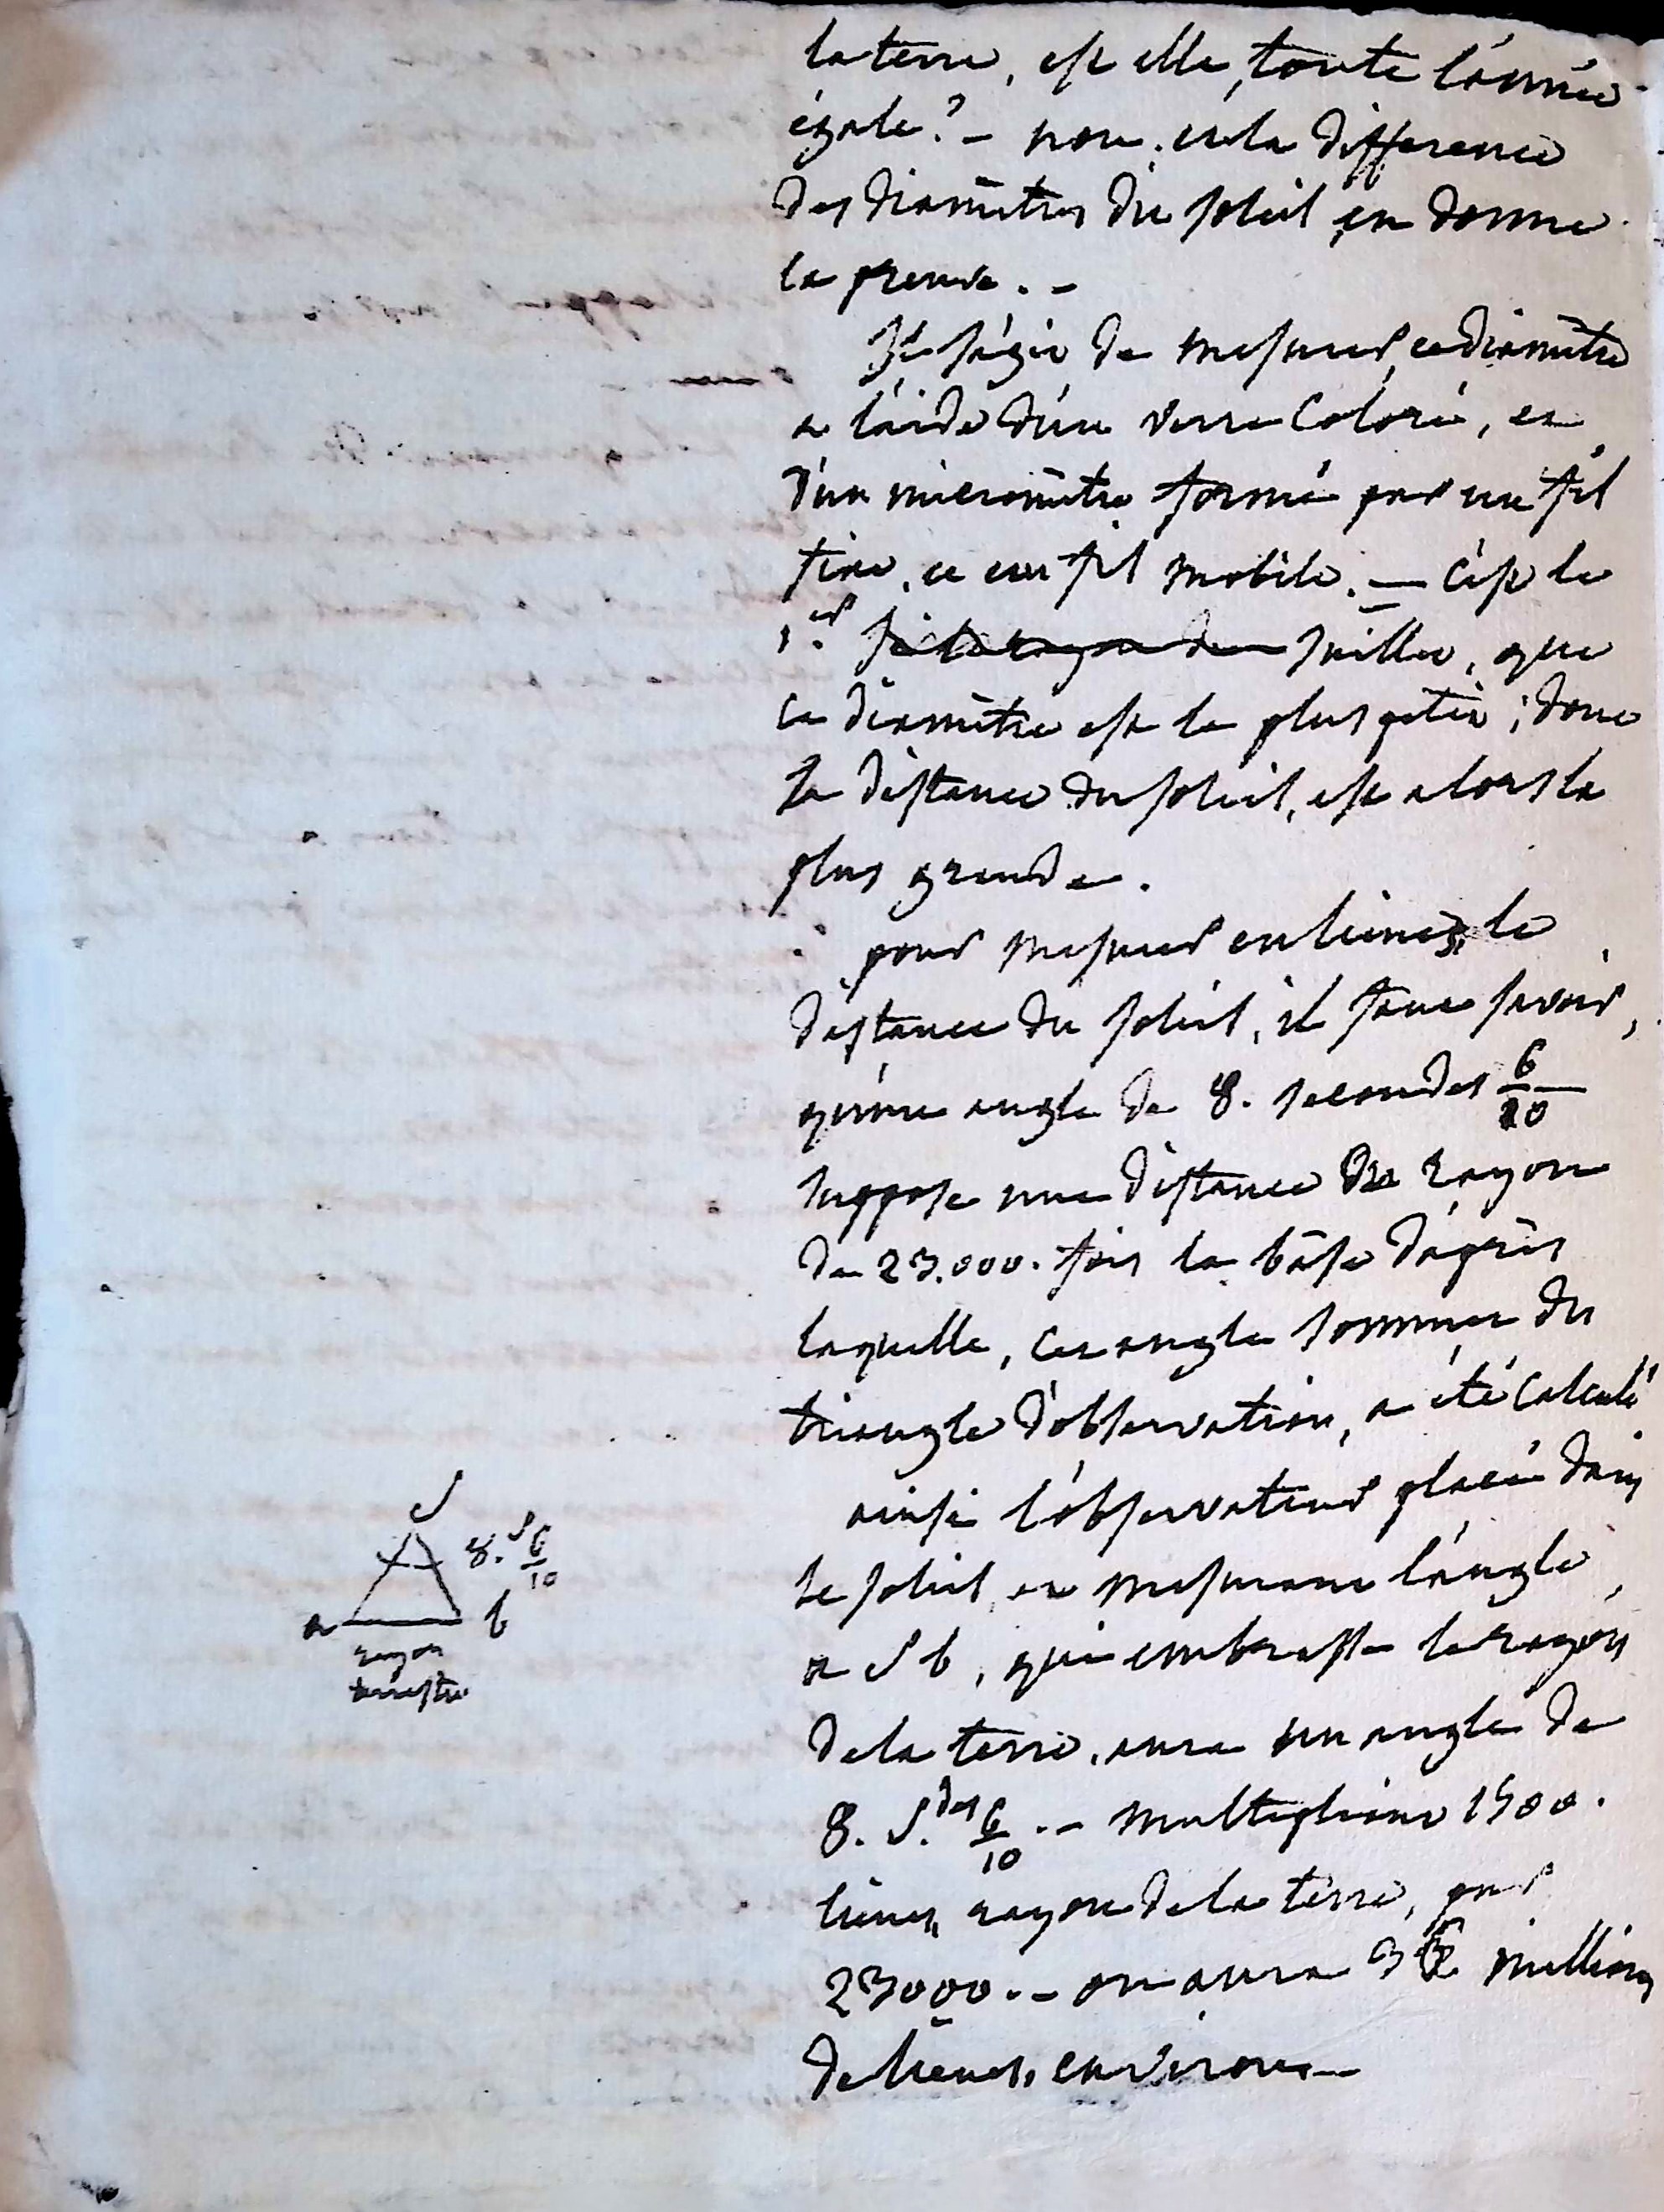 la terre, est elle, toute l'année
égale? – non. et la difference
des diamètres du soleil en donne
la preuve. –
Il s'agit de mesurer, ce diamètre
a l'aide d'un verre coloré, et
d'un micromètre formé par un fil
fixe, et un fil mobile. — c'est le
1.er juillet, que
ce diamètre est le plus petit; donc
la distance du soleil, est alors la
plus grande.
pour mesurer en lieues, la
distance du soleil, il faut savoir,
qu'un angle de 8. secondes 6/10
suppose une distance de rayon
de 23.000. fois la bâse d'après
laquelle, cet angle sommet du
triangle d'observation, a été calculé
ainsi l'observateur placé dans
le soleil, et mesurant l'angle
a S b, qui embrasse le rayon
de la terre, aura un angle de
8. S.des 6/10 . – multipliant 1500.
lieues, rayon de la terre, par
23000. – on aura millions
de lieues, environ —
S
8. S 6/10
a b
rayon
terrestre